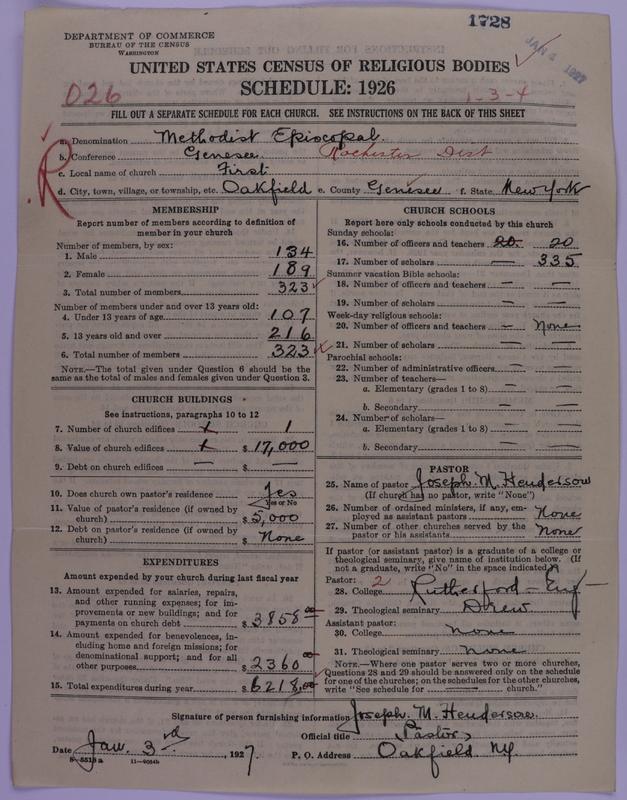 1728
DEPARTMENT OF COMMERCE
BUREAU OF THE CENSUS
WASHINGTON
JAN 4 1927
UNITED STATES CENSUS OF RELIGIOUS BODIES
026
SCHEDULE: 1926
1-3-4
FILL OUT A SEPARATE SCHEDULE FOR EACH CHURCH. SEE INSTRUCTIONS ON THE BACK OF THIS SHEET
R
a. Denomination Methodist Episcopal
b. Conference Genesee Rochester Dist
c. Local name of church First
d. City, town, village, or township, etc. Oakfield e. County Genesee f. State New York
MEMBERSHIP
Report number of members according to definition of member in your church
Number of members, by sex:
1. Male 134
2. Female 189
3. Total number of members 323
Number of members under and over 13 years old:
4. Under 13 years of age 107
5. 13 years old and over 216
6. Total number of members 323
NOTE.—The total given under Question 6 should be
same as the total of males and females given under Question 3.
CHURCH BUILDINGS
See instructions, paragraphs 10 to 12
7. Number of church edifices 1 1
8. Value of church edifices 1 $ 17,000
9. Debt on church edifices — $ —
10. Does church own pastor's residence Yes
Yes or No
11. Value of pastor's residence (if owned by
church) $ 5,000
12. Debt on pastor's residence (if owned by
church) $ None
EXPENDITURES
Amount expended by your church during last fiscal year
13. Amount expended for salaries, repairs,
and other running expenses; for im-
provements or new buildings; and for
payments on church debt $ 3858.00
14. Amount expended for benevolences, in-
cluding home and foreign missions; for
denominational support; and for all
other purposes $ 2360
15. Total expenditures during year $ 6218.00
CHURCH SCHOOLS
Report here only schools conducted by this church
Sunday schools:
16. Number of officers and teachers 20 20
17. Number of scholars — 335
Summer vacation Bible schools:
18. Number of officers and teachers — —
19. Number of scholars — —
Week-day religious schools:
20. Number of officers and teachers — None
21. Number of scholars — —
Parochial schools:
22. Number of administrative officers — —
23. Number of teachers—
a. Elementary (grades 1 to 8) — —
b. Secondary — —
24. Number of scholars—
a. Elementary (grades 1 to 8) — —
b. Secondary — —
PASTOR
25. Name of pastor Joseph M. Henderson
(If church has no pastor, write "None")
26. Number of ordained ministers, if any, em-
ployed as assistant pastors None
27. Number of other churches served by the
pastor or his assistants None
If pastor (or assistant pastor) is a graduate of a college or
theological seminary, give name of institution below. (If
not a graduate, write "No" in the space indicated)
Pastor: 2
28. College Rutherford - Eng -
29. Theological seminary Drew
Assistant pastor:
30. College none
31. Theological seminary none
NOTE.—Where one pastor serves two or more churches,
Questions 28 and 29 should be answered only on the schedule
for one of the churches; on the schedules for the other churches,
write "See schedule for ——— church."
Signature of person furnishing information Joseph M. Henderson
Official title Pastor
Date Jan. 3rd, 1927. P. O. Address Oakfield N.Y.
8-5513 a 11-9054b